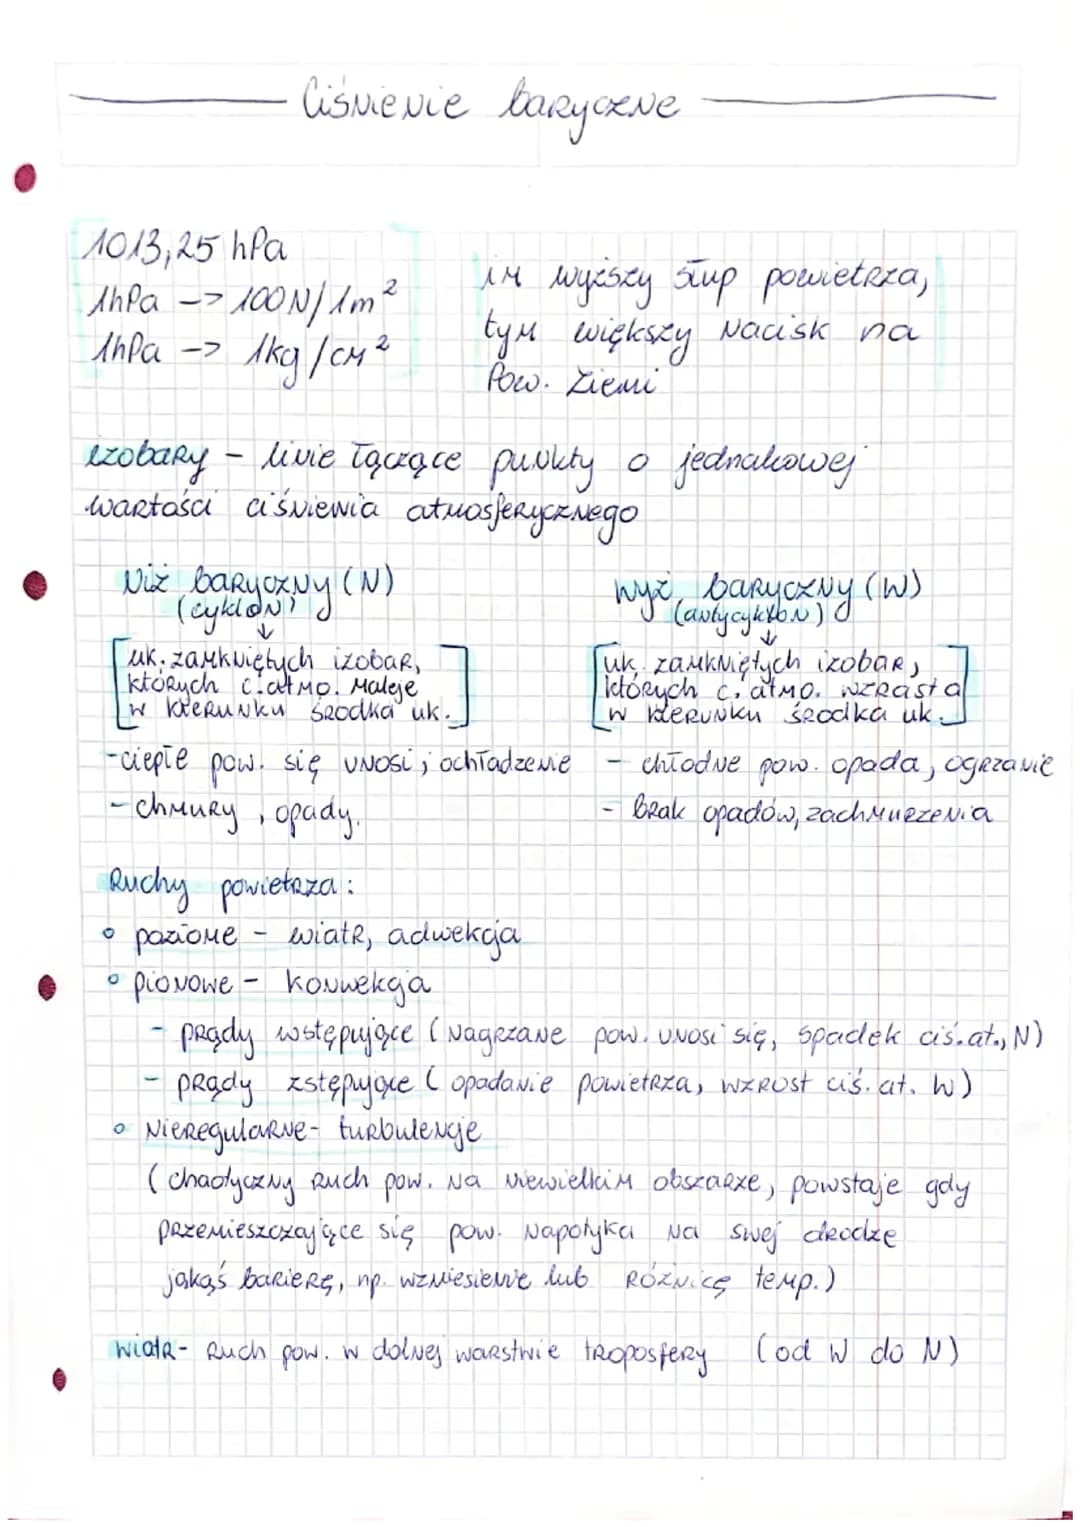 Ciśnienie baryczne
1013,25 hPa
1hPa -> 100N/1m²
1hPa -> 1kg/cm²
im wyższy słup powietrza,
tym większy nacisk na
Pow. Ziemi
izobary - linie łączące punkty o jednakowej
wartości ciśnienia atmosferycznego
Niż baryczny (N)
(cyklon)
↓
[uk. zamkniętych izobar,
których c.atmo. maleje
w kierunku środka uk.]
-ciepłe pow. się unosi; ochładzenie
- chmury, opady.
wyż baryczny (W)
(antycyklon)
↓
[uk. zamkniętych izobar,
których c. atmo. wzrasta
w kierunku środka uk.]
- chłodne pow. opada, ogrzanie
- brak opadów, zachmurzenia
Ruchy powietrza:
o poziome - wiatr, adwekcja
o pionowe - konwekcja
- prądy wstępujące (nagrzane pow. unosi się, spadek ciś.at., N)
- prądy zstępujące (opadanie powietrza, wzrost ciś. at. W)
o nieregularne- turbulencje
(chaotyczny ruch pow. na niewielkim obszarze, powstaje gdy
przemieszczające się pow. napotyka na swej drodze
jakąś barierę, np. wzniesienie lub różnicę temp.)
wiatr- ruch pow. w dolnej warstwie troposfery (od W do N)